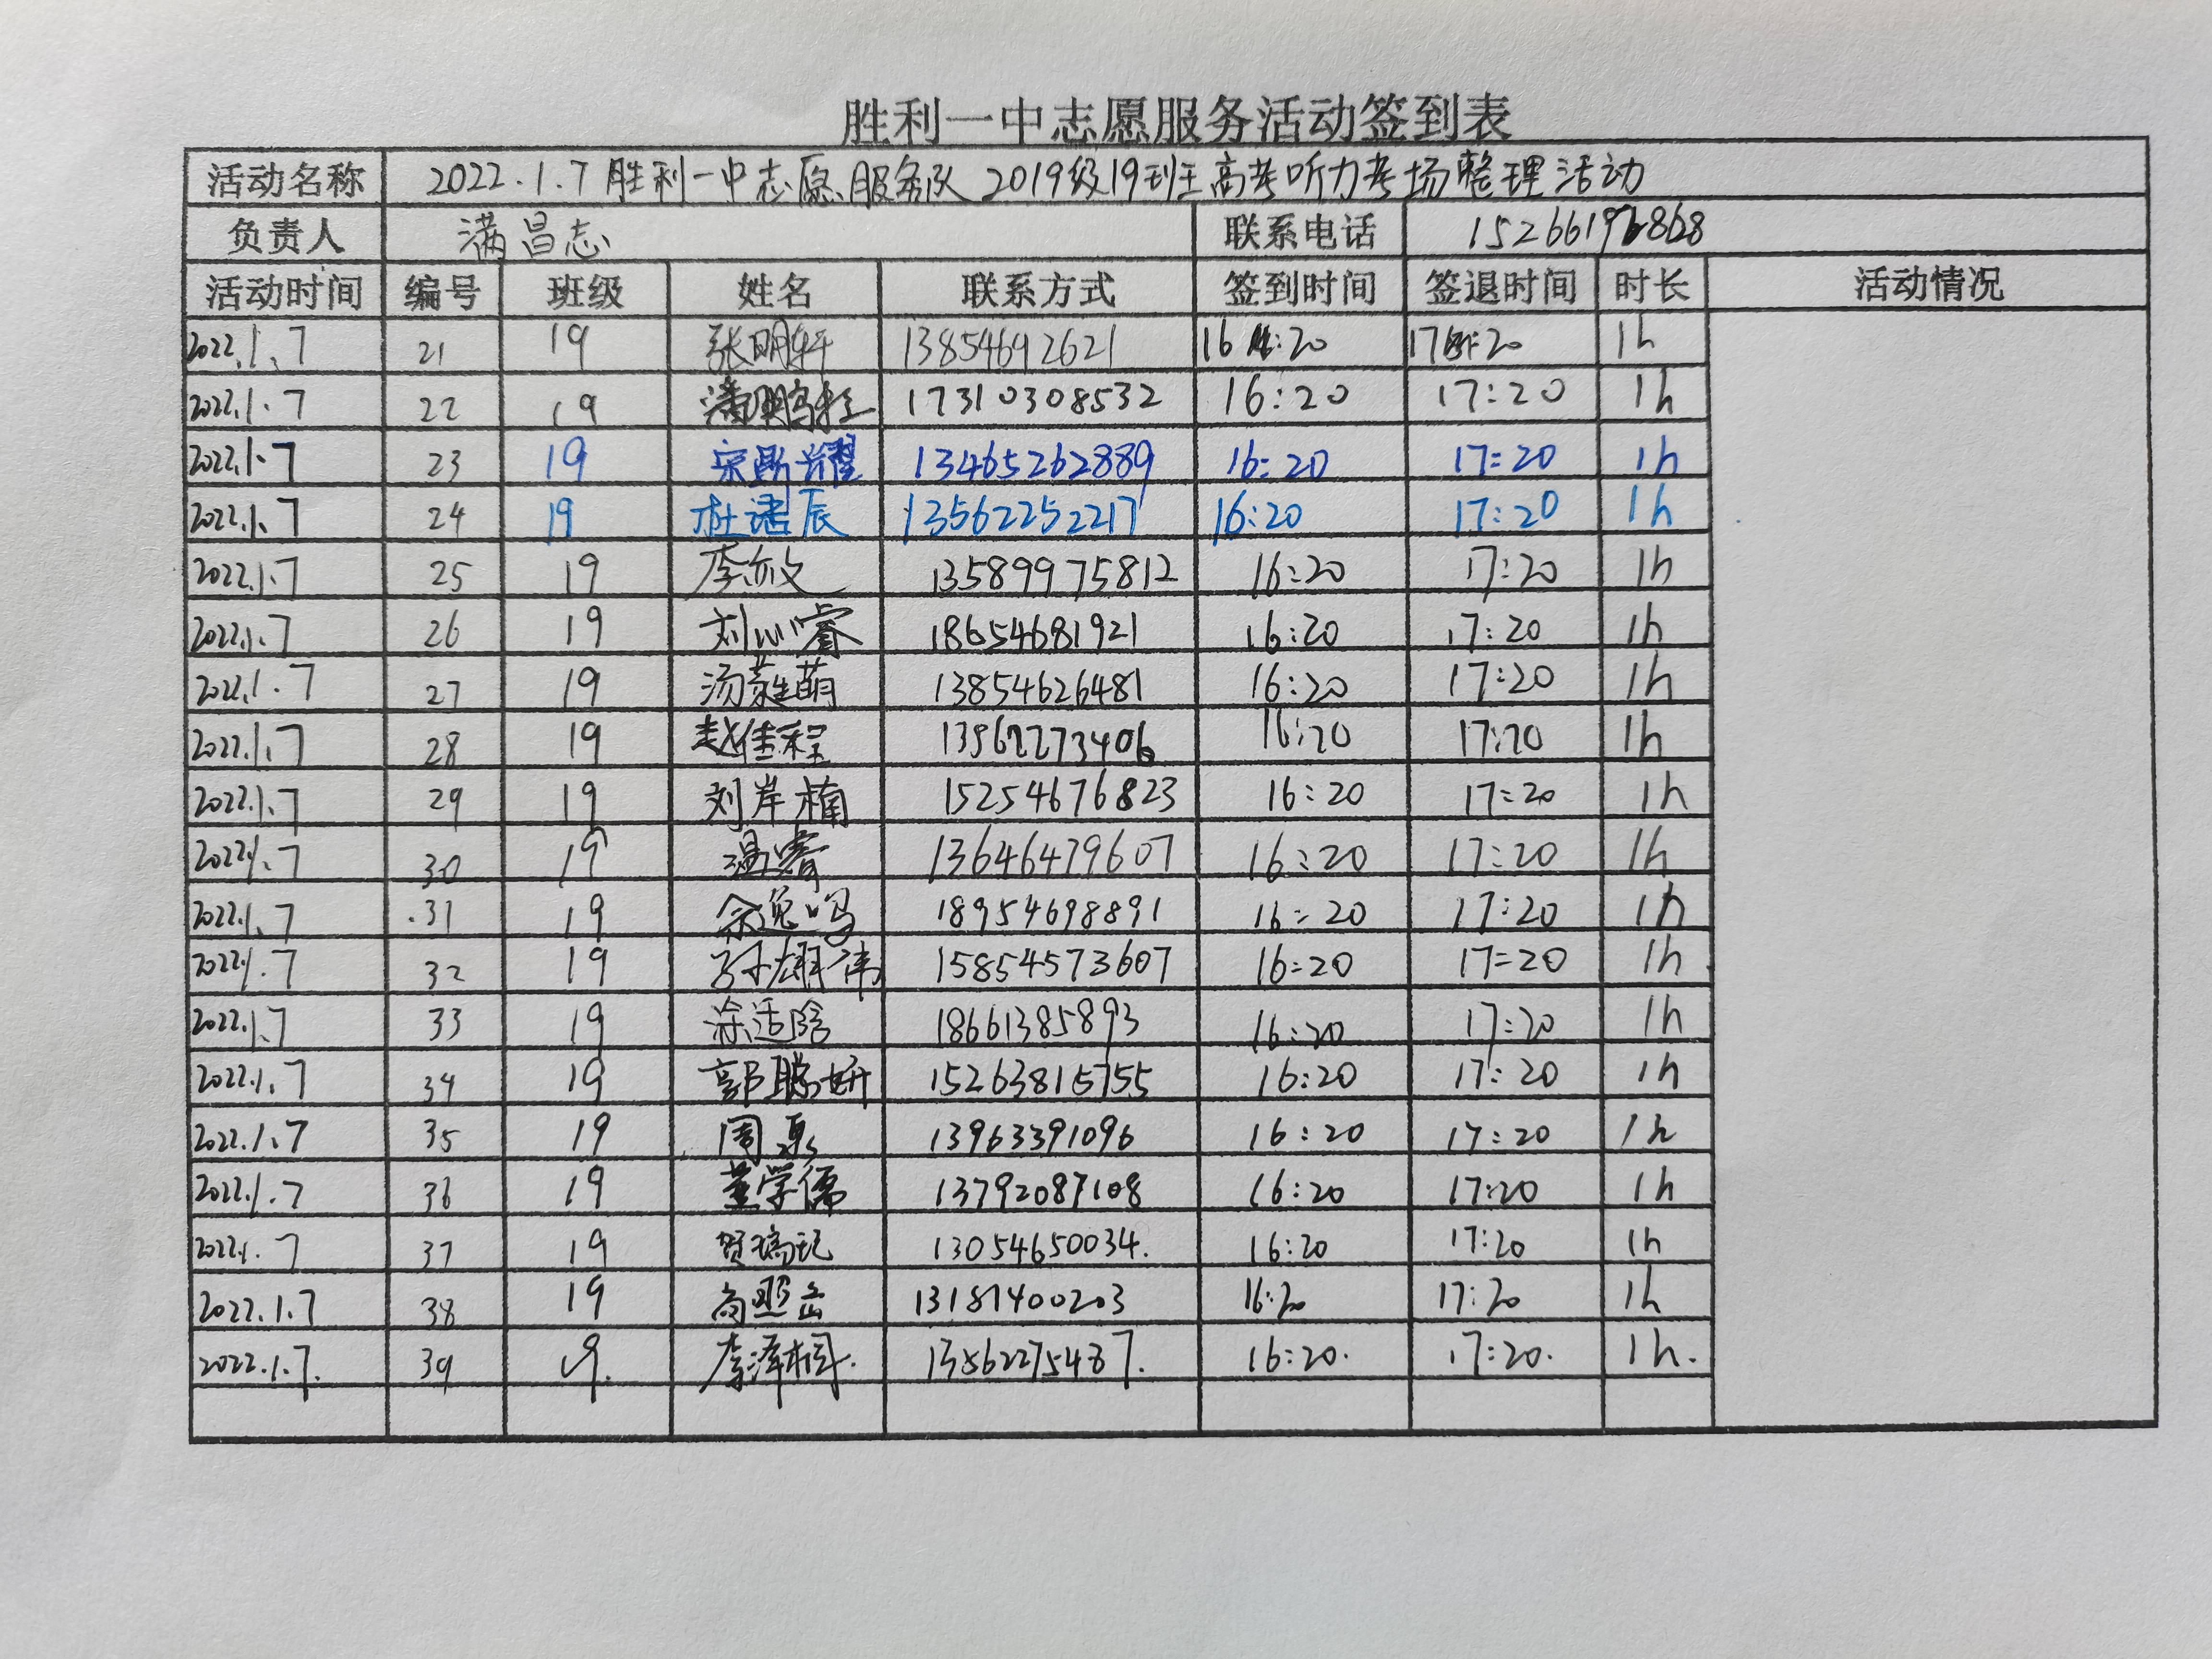 胜利一中志愿服务活动签到表
活动名称 2022.1.7胜利一中志愿服务队 2019级19班高考听力考场整理活动
负责人 满昌志 联系电话
活动时间 编号 班级 姓名 联系方式 签到时间 签退时间 时长 活动情况
2022.1.7 21 19 张明轩 13854692621 16:20 17:20 1h
2022.1.7 22 19 17310308532 16:20 17:20 1h
2022.1.7 23 19 宋鹏耀 13465262889 16:20 17:20 1h
2022.1.7 24 19 杜诺辰 13562252217 16:20 17:20 1h
2022.1.7 25 19 李亦文 13589975812 16:20 17:20 1h
2022.1.7 26 19 刘心睿 18654681921 16:20 17:20 1h
2022.1.7 27 19 13854626481 16:20 17:20 1h
2022.1.7 28 19 赵佳程 16:20 17:20 1h
2022.1.7 29 19 刘岸楠 15254676823 16:20 17:20 1h
2022.1.7 30 19 温睿 13646479607 16:20 17:20 1h
2022.1.7 31 19 18954698891 16:20 17:20 1h
2022.1.7 32 19 15854573607 16:20 17:20 1h
2022.1.7 33 19 涂适晗 18661385893 16:20 17:20 1h
2022.1.7 34 19 郭腾妍 15263815755 16:20 17:20 1h
2022.1.7 35 19 周泉 13963391096 16:20 17:20 1h
2022.1.7 36 19 董学儒 13792087108 16:20 17:20 1h
2022.1.7 37 19 13054650034. 16:20 17:20 1h
2022.1.7 38 19 高照岳 13181400203 16:20 17:20 1h
2022.1.7. 39 19. 李泽桐. 16:20. 17:20. 1h.